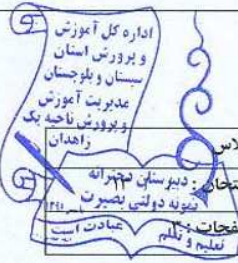 اداره کل آموزش
و پرورش استان
سیستان و بلوچستان
مدیریت آموزش
و پرورش ناحیه یک
زاهدان
لاس
دبیرستان دخترانه
نمونه دولتی بصیرت
تعلیم و تعلم عبادت است